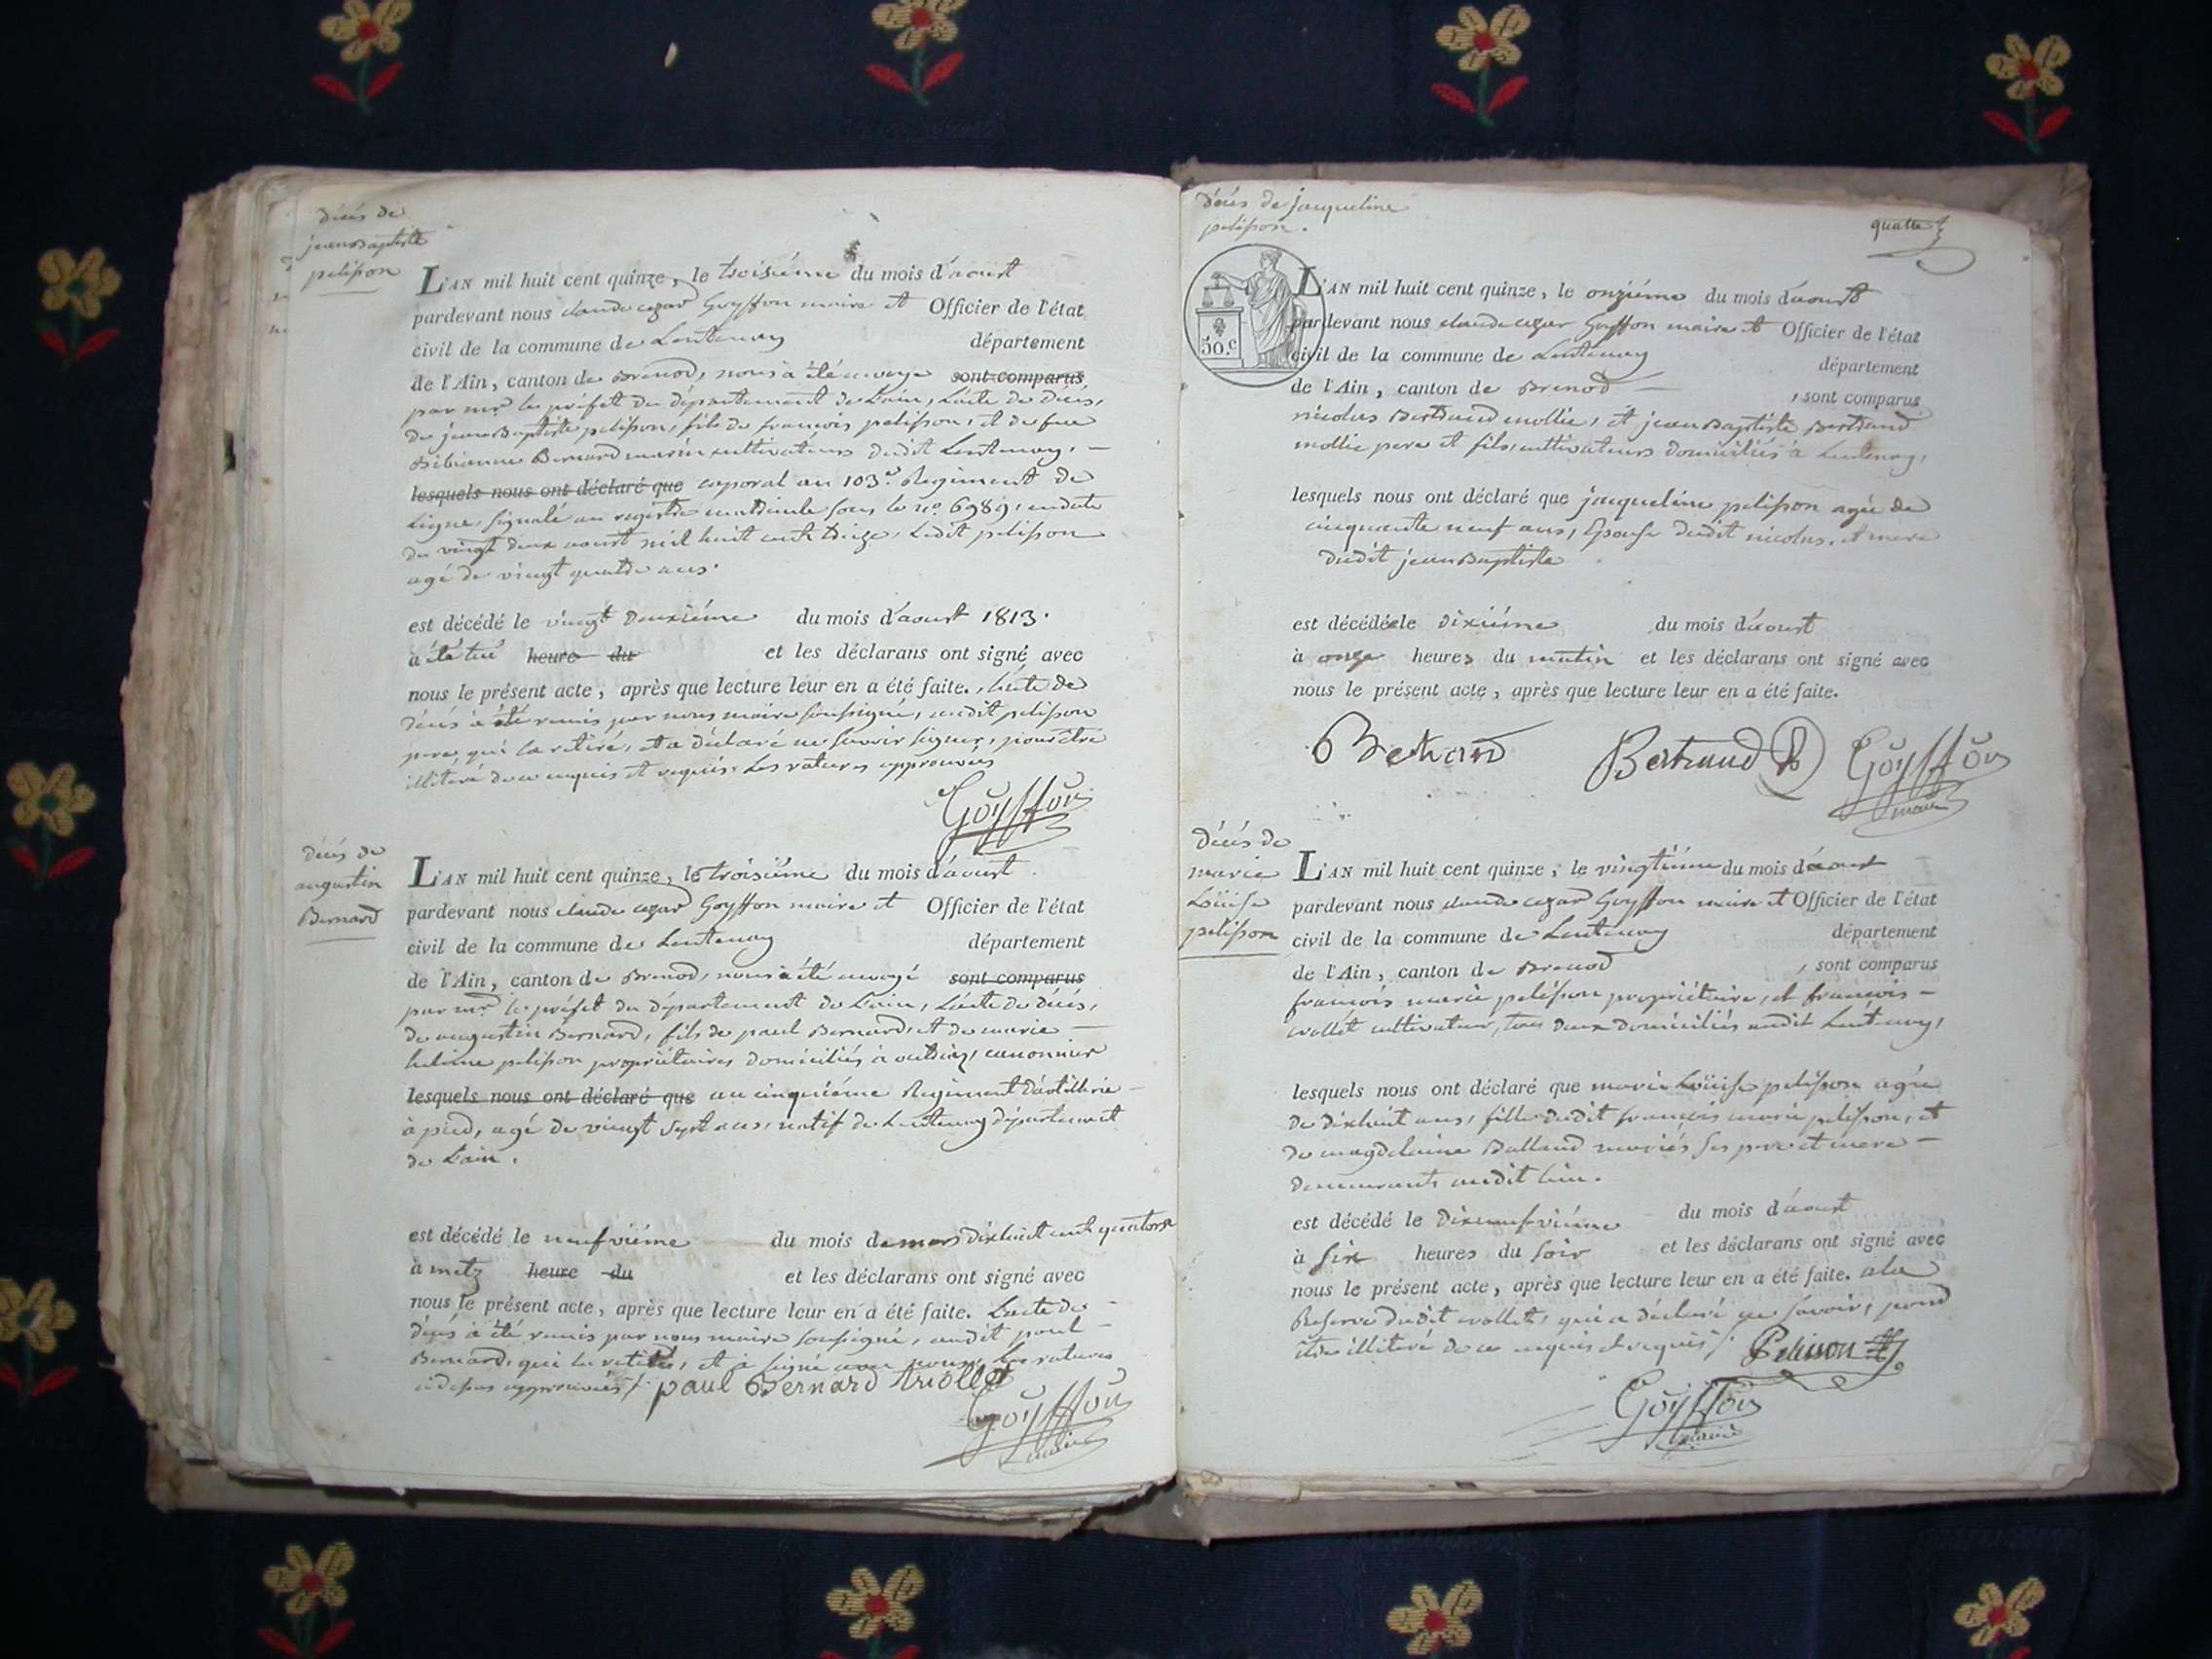 décés de
jean Baptiste
pelisson
L'AN mil huit cent quinze, le troisiéme du mois d'aoust
pardevant nous claude cezar Goyffon maire et Officier de l'état
civil de la commune de Lentenay département
de l'Ain, canton de Brenod, nous a été envoyé sont comparus
par mr. le préfet du département de L'ain, L'acte de décés,
de jean Baptiste pelisson, fils de françois pelisson, et de feue
Bibianne Bernard mariés cultivateurs dudit Lentenay, —
lesquels nous ont déclaré que caporal au 103e. Regiment de
Ligne, signalé au registre matricule sous le no. 6989, en date
du vingt deux aoust mil huit cent treize, Ledit pelisson
agé de vingt quatre ans.
est décédé le vingt deuxiéme du mois d'aoust 1813.
a été tué heure du et les déclarans ont signé avec
nous le présent acte, après que lecture leur en a été faite., L'acte de
décés a été remis par nous maire soussigné, audit pelisson
pere, qui l'a retiré, et a déclaré ne savoir signer, pour être
illiteré de ce enquis et requis. Les ratures approuvées
Goyffon
décés de
augustin
Bernard
L'AN mil huit cent quinze, le troisiéme du mois d'aoust
pardevant nous claude cezar Goyffon maire et Officier de l'état
civil de la commune de Lentenay département
de l'Ain, canton de Brenod, nous a été envoyé sont comparus
par mr. le préfet du département de L'ain, L'acte de décés,
de augustin Bernard, fils de paul Bernard, et de marie —
pelisson propriétaires domiciliés à canonnier
lesquels nous ont déclaré que au cinquiéme Regiment d'artillerie —
à pied, agé de vingt sept ans, natif de Lentenay département
de L'ain.
est décédé le neufviéme du mois de mars dixhuit cent quatorze
à metz heure du et les déclarans ont signé avec
nous le présent acte, après que lecture leur en a été faite. L'acte de
décés a été remis par nous maire soussigné, audit paul —
Bernard, qui l'a retiré, et a signé avec nous, Les ratures
cidessus approuvées /. paul Bernard triollet
Goyffon
maire
décés de jacqueline
pelisson.
quatre
50.c
L'AN mil huit cent quinze, le onziéme du mois d'aoust
pardevant nous claude cezar Goyffon maire et Officier de l'état
civil de la commune de Lentenay département
de l'Ain, canton de Brenod — , sont comparus
nicolas Bertrand mollie, et jean Baptiste Bertrand
mollie pere et fils, cultivateurs domiciliés à Lentenay,
lesquels nous ont déclaré que jacqueline pelisson agée de
cinquante neuf ans, Epouse dudit nicolas, et mere
dudit jean Baptiste
est décédée le dixiéme du mois d'aoust
à onze heures du matin et les déclarans ont signé avec
nous le présent acte, après que lecture leur en a été faite.
Bertrand Bertrand Goyffon
maire
décés de
marie
Loüise
pelisson
L'AN mil huit cent quinze, le vingtiéme du mois d'aoust
pardevant nous claude cezar Goyffon maire et Officier de l'état
civil de la commune de Lentenay département
de l'Ain, canton de Brenod , sont comparus
françois marie pelisson propriétaire, et françois —
cultivateur, tous deux domiciliés audit Lentenay,
lesquels nous ont déclaré que marie Loüise pelisson agée
de dixhuit ans, fille dudit françois marie pelisson, et
de magdelaine Balland mariés ses pere et mere —
demeurants audit lieu.
est décédé le dixneufviéme du mois d'aoust
à six heures du soir et les déclarans ont signé avec
nous le présent acte, après que lecture leur en a été faite. a la
Reserve dudit qui a déclaré ne savoir, pour
être illiteré de ce enquis et requis /. Pelisson
Goyffon
maire